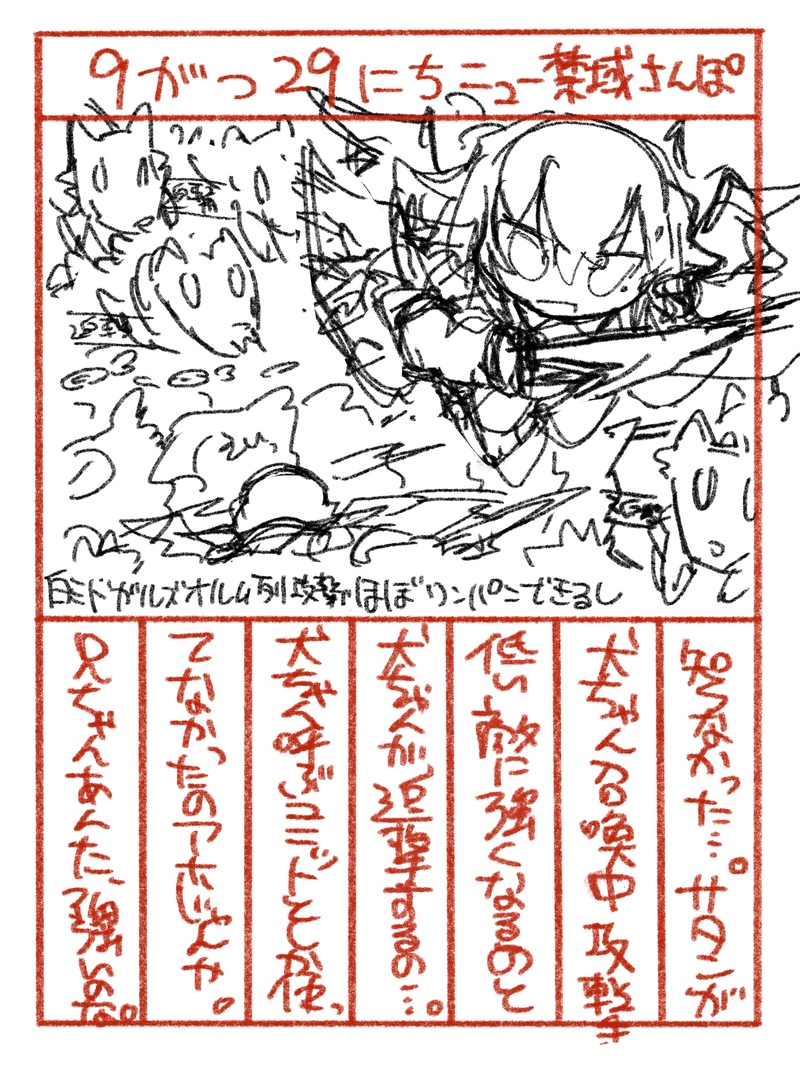 9がつ29にちニュー禁域さんぽ
追撃
追撃
追撃
白ミドガルズオルム列攻撃がほぼワンパンできるし
知らなかった…。サタンが
犬ちゃん召喚中攻撃
低い敵に強くなるのと
犬ちゃんが追撃するの…。
犬ちゃん呼ぶユニットとしか使っ
てなかったのアホじゃんか。
兄ちゃんあんた、強いのな。